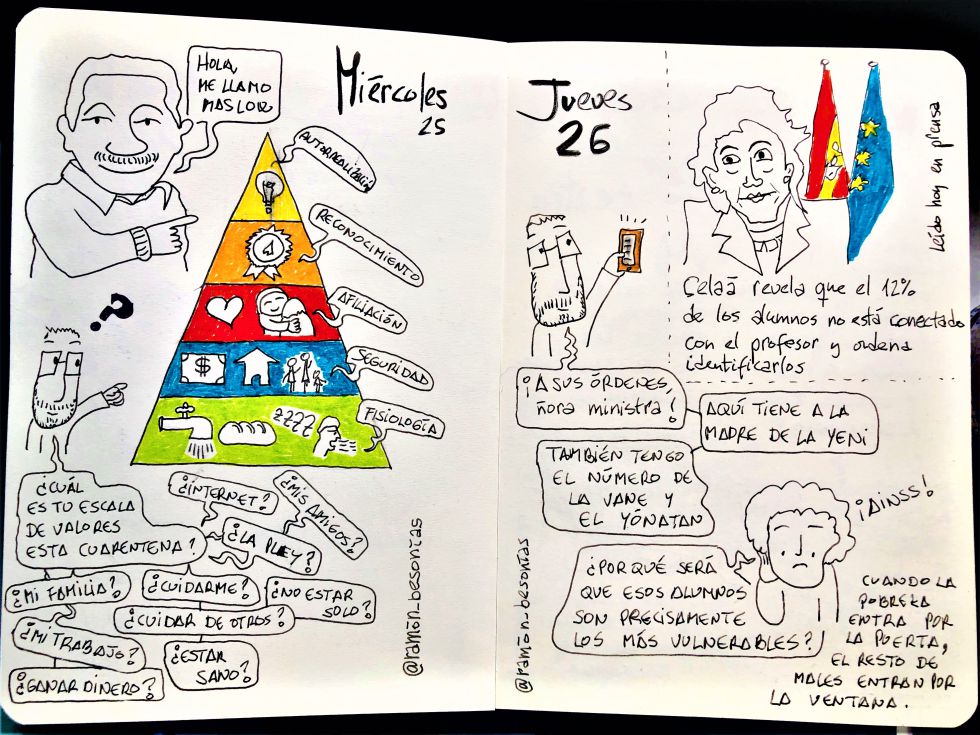 HOLA,
ME LLAMO
MASLOW
Miércoles
25
AUTORREALIZACIÓN
RECONOCIMIENTO
AFILIACIÓN
SEGURIDAD
FISIOLOGÍA
1
$
$
ZZZZ
?
¿CUÁL
ES TU ESCALA
DE VALORES
ESTA CUARENTENA?
¿INTERNET?
¿MIS AMIGOS?
¿LA PLEY?
¿MI FAMILIA?
¿CUIDARME?
¿NO ESTAR
SOLO?
¿CUIDAR DE OTROS?
¿MI TRABAJO?
¿ESTAR
SANO?
¿GANAR DINERO?
@ramón_besonías
Jueves
26
Leído hoy en prensa
Celaá revela que el 12%
de los alumnos no está conectado
con el profesor y ordena
identificarlos
¡A SUS ÓRDENES,
ñora ministra!
AQUÍ TIENE A LA
MADRE DE LA YENI
TAMBIÉN TENGO
EL NÚMERO DE
LA VANE Y
EL YÓNATAN
¡AINSS!
¿POR QUÉ SERÁ
QUE ESOS ALUMNOS
SON PRECISAMENTE
LOS MÁS VULNERABLES?
CUANDO LA
POBREZA
ENTRA POR
LA PUERTA,
EL RESTO DE
MALES ENTRAN POR
LA VENTANA.
@ramón_besonías